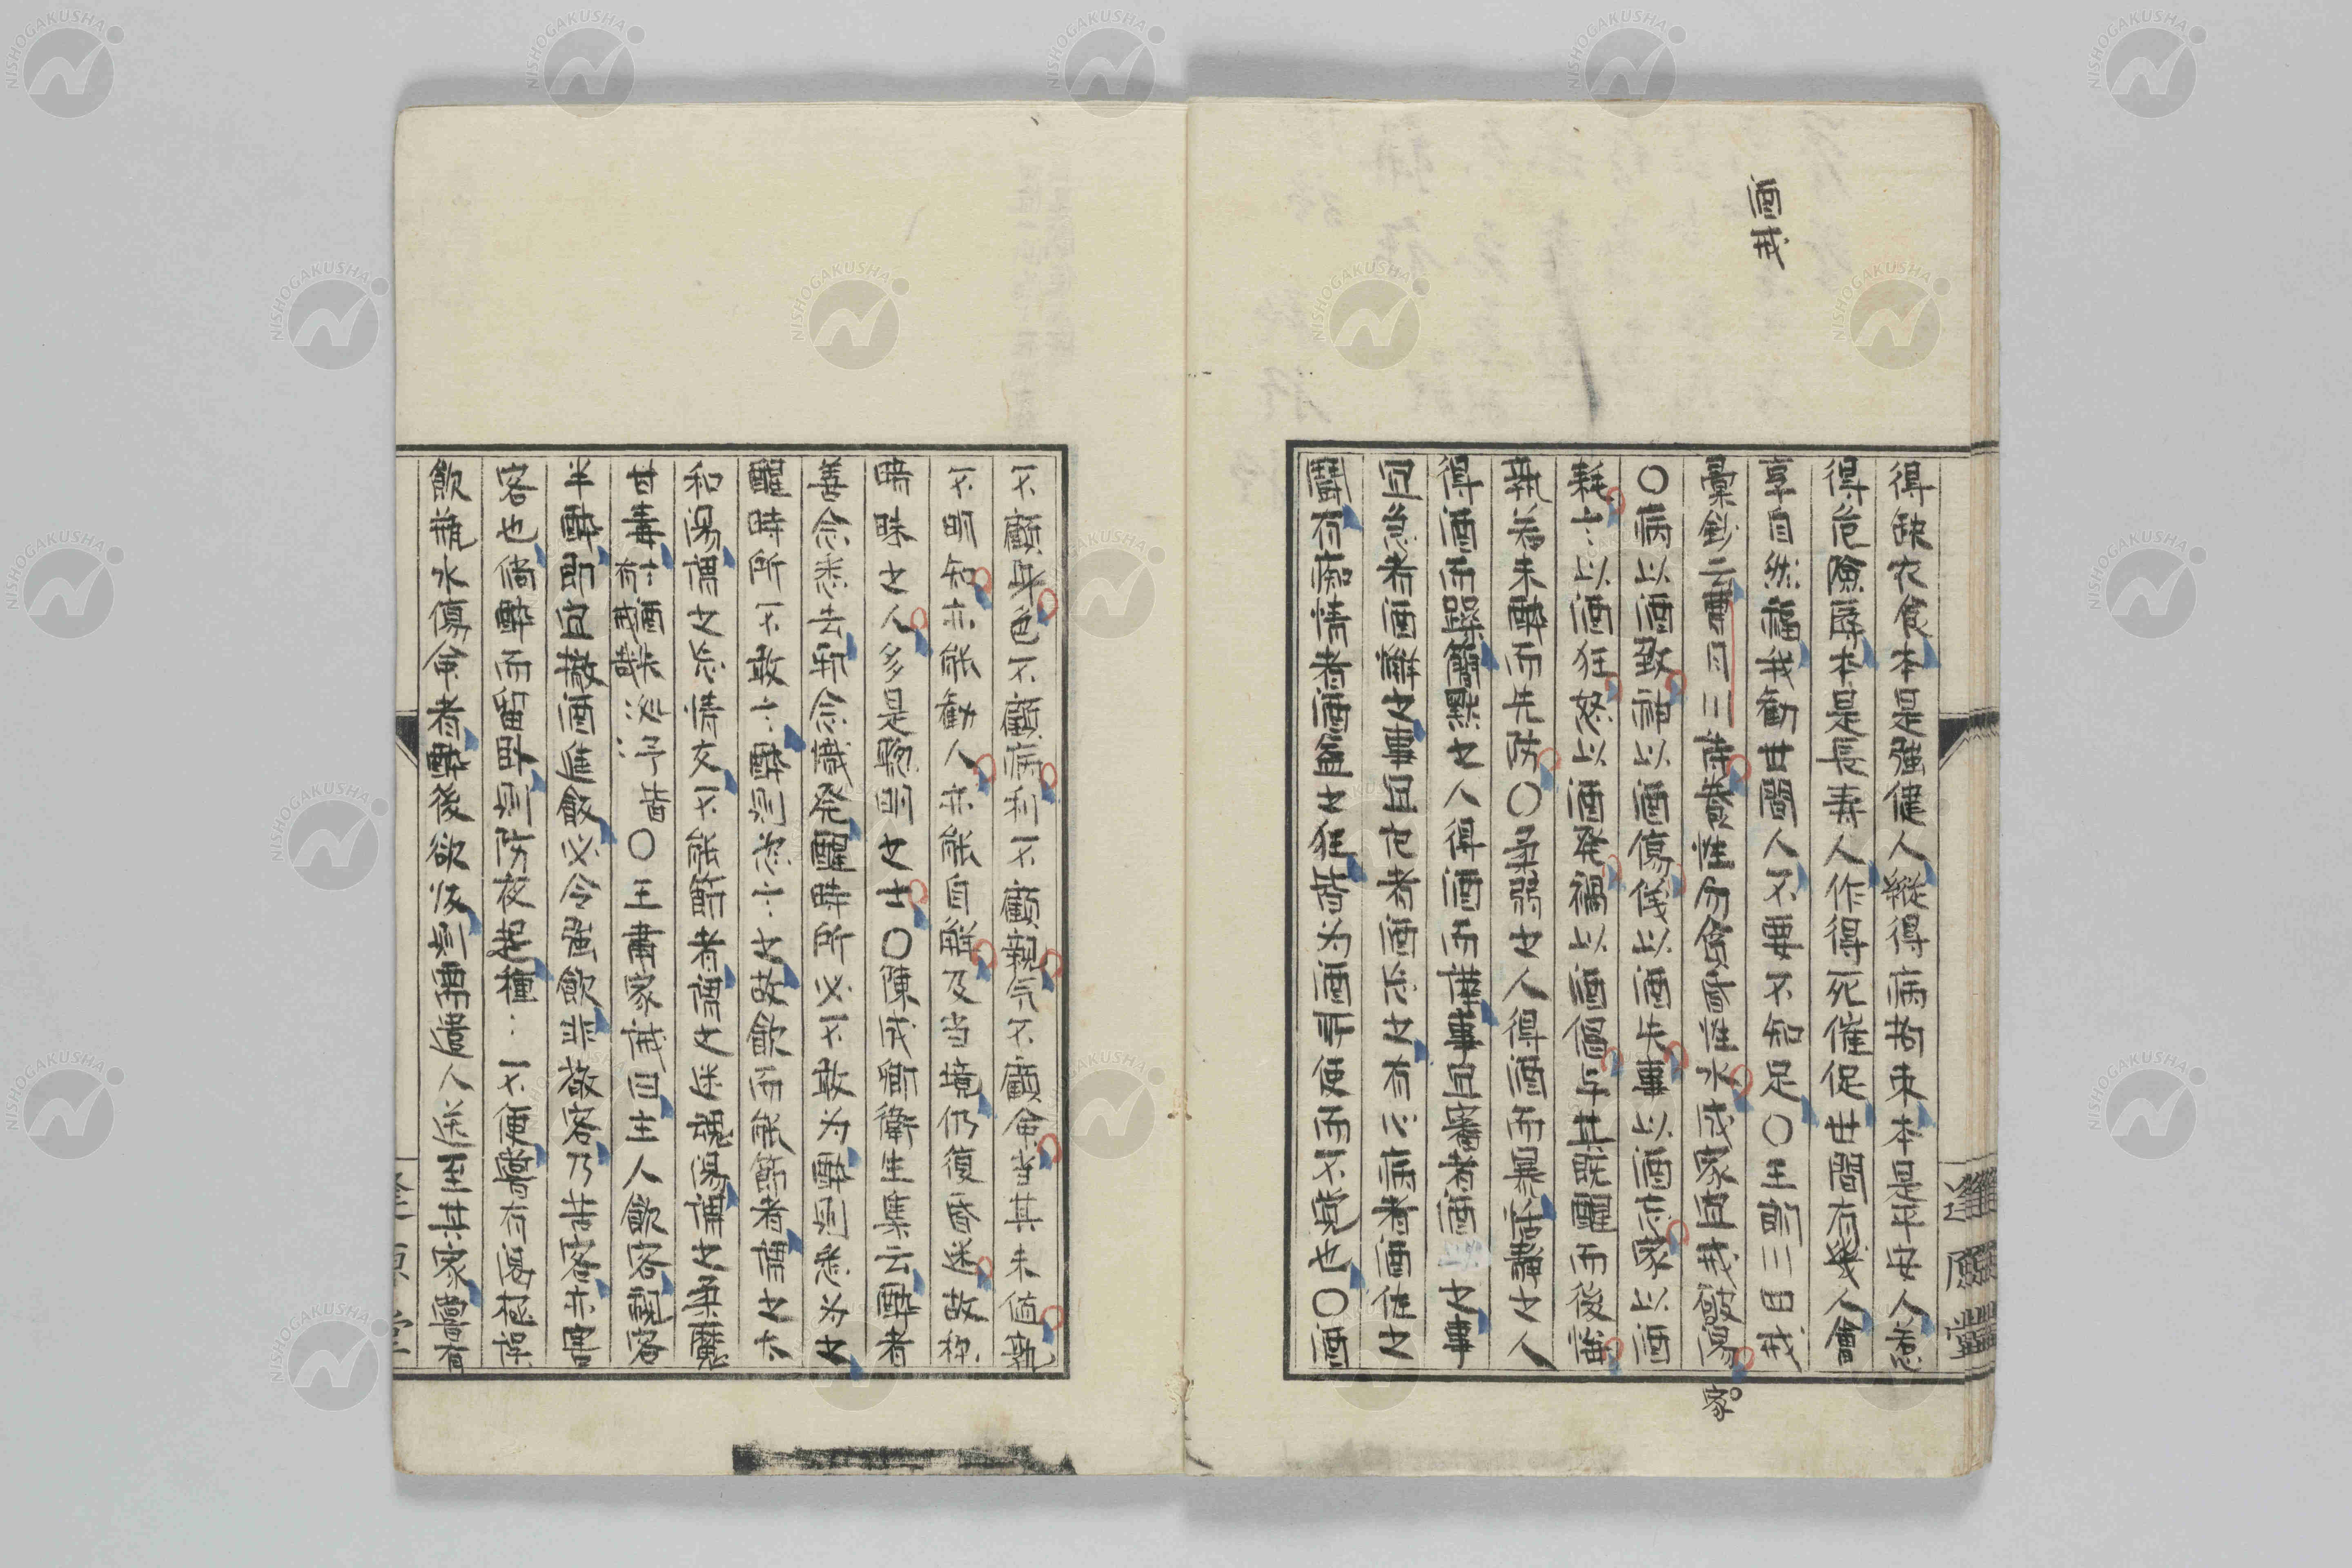 酒戒
得缺衣食本是强健人縱得病拘束本是平安人惹
得危險孱本是長壽人作得死催促世間有幾人會
享自然福我勸世間人不要不知足〇王郎川日戒
彙鈔云曹月川詩費性勿貪昏性水成家宜戒敗湯
家
〇病以酒致神以酒傷儀以酒失事以酒忘家以酒
耗言以酒狂怒以酒發禍以酒僞与其既醒而後悔
孰若未醉而先防〇柔弱之人得酒而暴詰靜之人
得酒而躁簡默之人得酒而譁事宜審者酒 之事
宜急者酒懈之事宜也者酒忘之有以病者酒使之
鬪有痴情者酒益之狂皆为酒所使而不覚也〇酒
不顧身色不顧病利不顧親気不顧命当其未值孰
不明知亦能勸人亦能自解及当境仍復昏迷故称
暗昧之人多是聰明之士〇陳成卿衛生集云醉者
善念悉去邪念熾発醒時所必不敢为醉則悉为之
醒時所不敢言醉則忽言之故飲而能節者謂之太
和湯謂之忘情友不能節者謂之迷魂湯謂之柔魔
甘毒有言酒戒米哉泌汙皆〇王書家誡曰主人飲客観客
半醉即宜撤酒進飯必令强飲非敬客乃苦客亦害
客也倘醉而留臥則防夜起種〻不便嘗有渴極誤
飲瓶水傷命者醉後欲返則需遣人送至其家嘗有
遂願堂